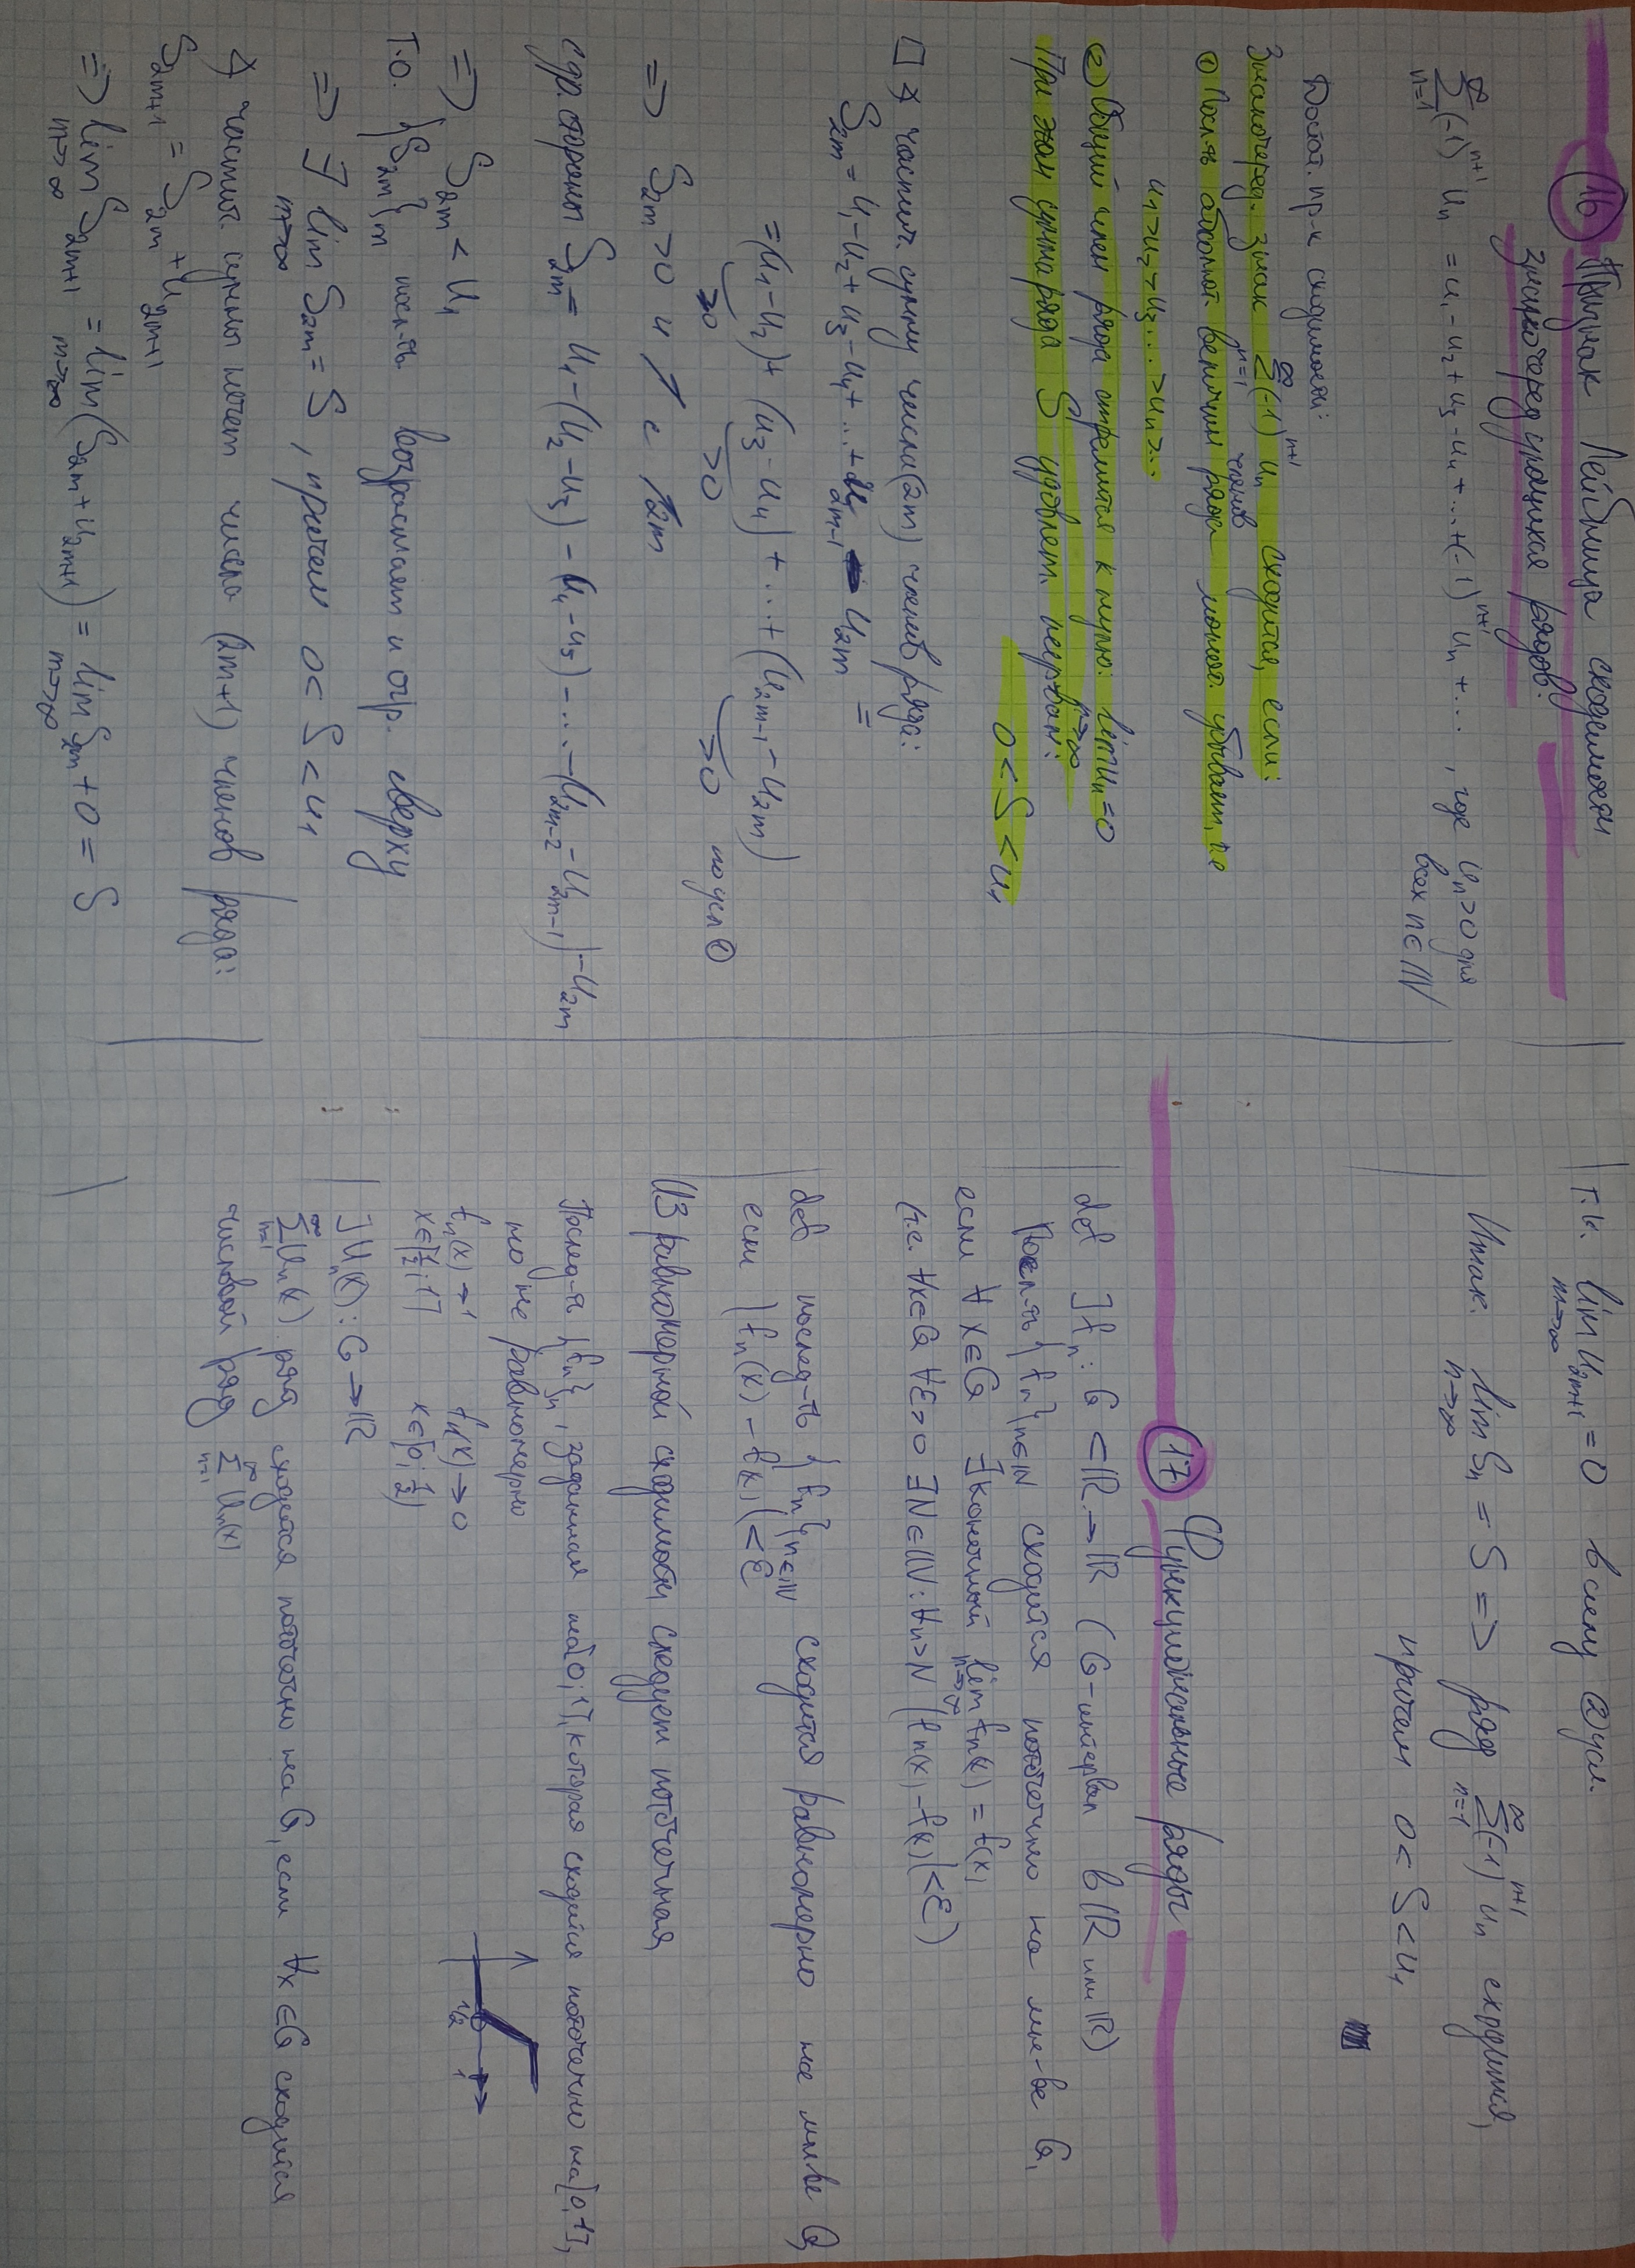 ⑯ Признак Лейбница сходимости
знакочеред-ующихся рядов:
∞ ∑ n=1 (-1)^{n+1} u_n = u_1 - u_2 + u_3 - u_4 + ... + (-1)^{n+1} u_n + ... , где u_n > 0 для
всех n ∈ ℕ
Достат. пр-к сходимости:
Знакочеред. знак ∞ ∑ n=1 (-1)^{n+1} u_n сходится, если:
① Посл-ть абсолют величин членов ряда монот. убывает, т.е
u_1 > u_2 > u_3 ... > u_n > ...
② Общий член ряда стремится к нулю: lim n→∞ u_n = 0
При этом сумма ряда S удовлет. нер-вам:
0 < S < u_1
□ ∢ частич. сумму числа (2m) членов ряда:
S_{2m} = u_1 - u_2 + u_3 - u_4 + ... + u_{2m-1} - u_{2m} =
= (u_1 - u_2) + (u_3 - u_4) + ... + (u_{2m-1} - u_{2m})
>0 >0 >0 по усл ①
=> S_{2m} > 0 и ↑ с ↑ 2m
с др. стороны S_{2m} = u_1 - (u_2 - u_3) - (u_4 - u_5) - ... - (u_{2m-2} - u_{2m-1}) - u_{2m}
=> S_{2m} < u_1
Т.о. {S_{2m}}_m посл-ть возрастает и огр. сверху
=> ∃ lim m→∞ S_{2m} = S , причем 0 < S < u_1
∢ частич. суммы нечет число (2m+1) членов ряда:
S_{2m+1} = S_{2m} + u_{2m+1}
=> lim m→∞ S_{2m+1} = lim m→∞ (S_{2m} + u_{2m+1}) = lim m→∞ S_{2m} + 0 = S
т.к. lim m→∞ u_{2m+1} = 0 в силу ② усл.
Итак. lim n→∞ S_n = S => ряд ∞ ∑ n=1 (-1)^{n+1} u_n сходится,
причем 0 < S < u_1
⑰ Функциональные ряды
def ] f_n : G ⊂ ℝ → ℝ (G - интервал в ℝ или ℝ)
Посл-ть {f_n}_{n∈ℕ} сходится поточечно на мн-ве G,
если ∀ x ∈ G ∃ конечный lim n→∞ f_n(x) = f(x)
(т.е. ∀x∈G ∀ε>0 ∃N∈ℕ: ∀n>N |f_n(x) - f(x)| < ε)
def послед-ть {f_n}_{n∈ℕ} сходится равномерно на мн-ве G,
если |f_n(x) - f(x)| < ε
Из равномерной сходимости следует поточечная
Послед-ть {f_n}_n, заданная на [0;1], которая сходится поточечно на [0,1],
но не равномерно
f_n(x) → 1 f_n(x) → 0
x∈[1/2;1] x∈[0;1/2)
1/2 1
] u_n(x) : G → ℝ
∞ ∑ n=1 u_n(x) ряд сходится поточечно на G, если ∀x ∈ G сходится
числовой ряд ∞ ∑ n=1 u_n(x)